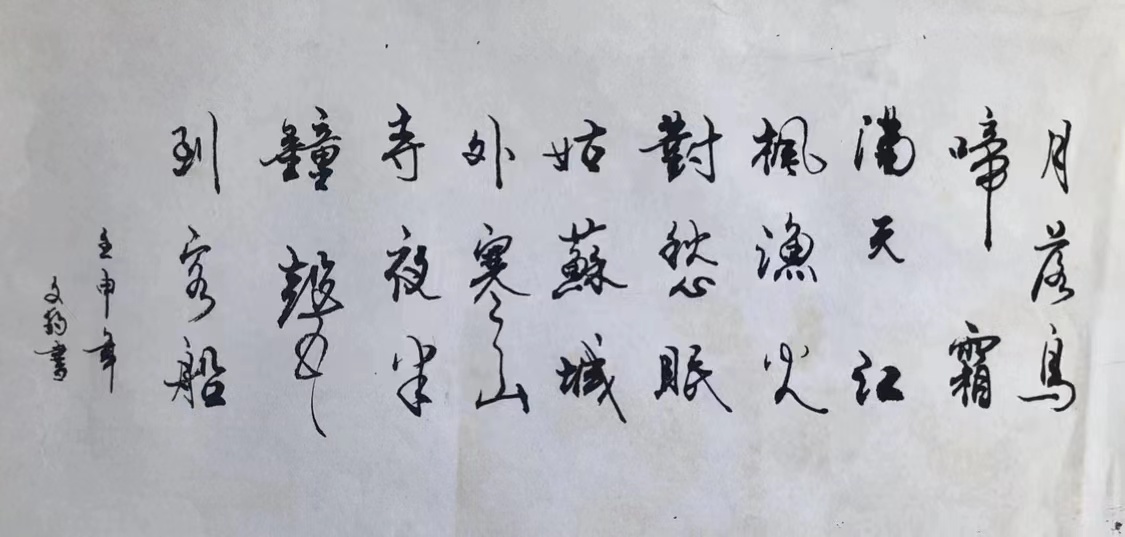 月落烏
啼霜
滿天江
楓漁火
對愁眠
姑蘇城
外寒山
寺夜半
鐘聲
到客船
壬申年
文書